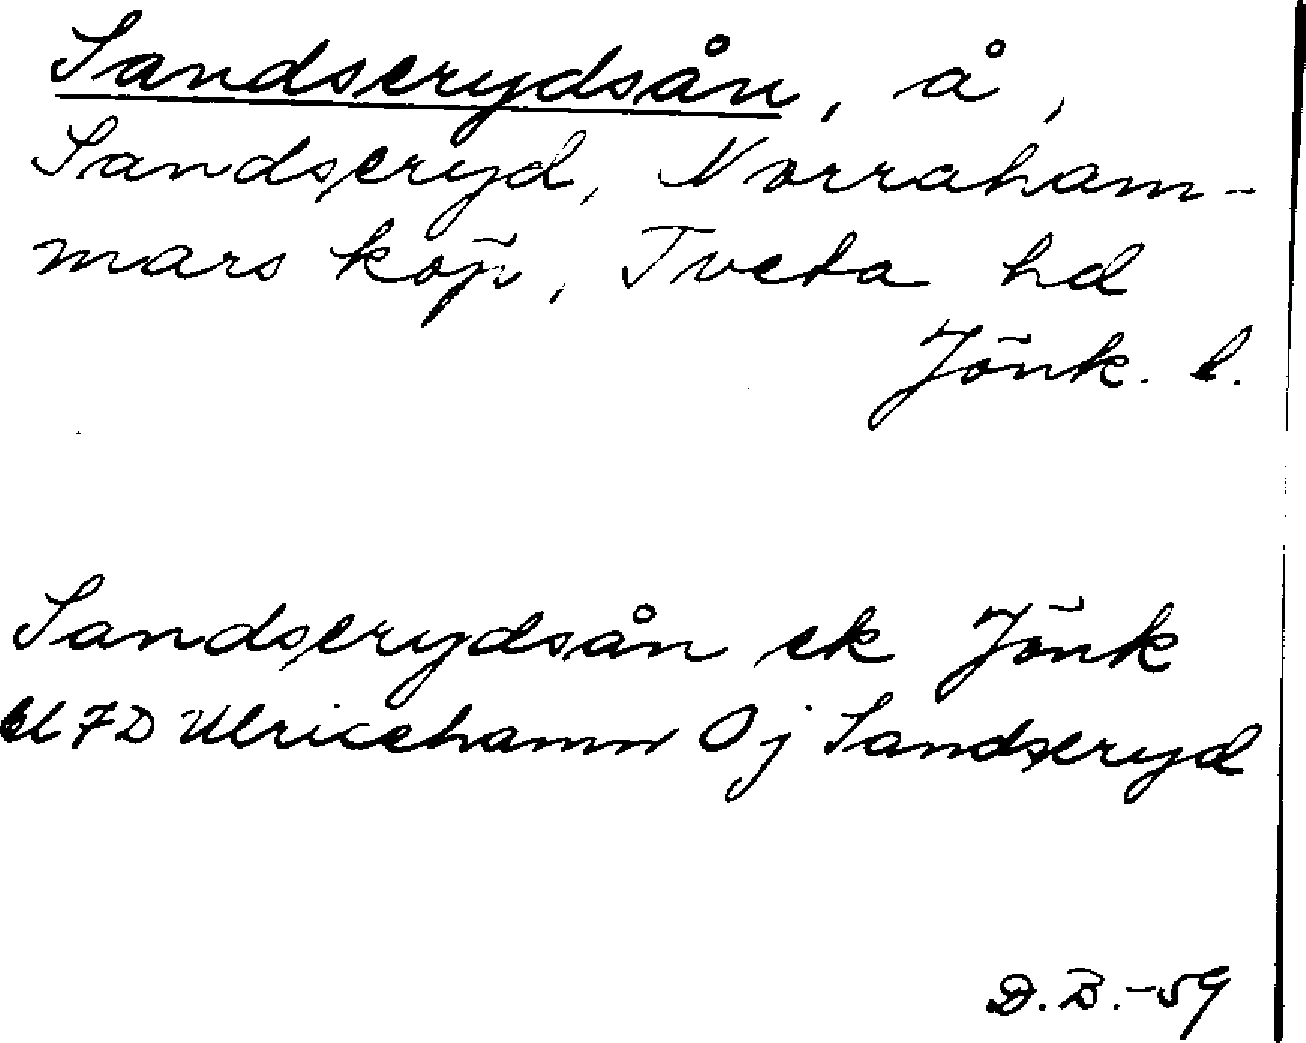 Sandserydsån, å,
Sandseryd, Norraham-
mars köp, Tveta hd
Jönk. l.
Sandserydsån ek Jönk
7D Ulricehamn Oj Sandseryd
D.B.-59